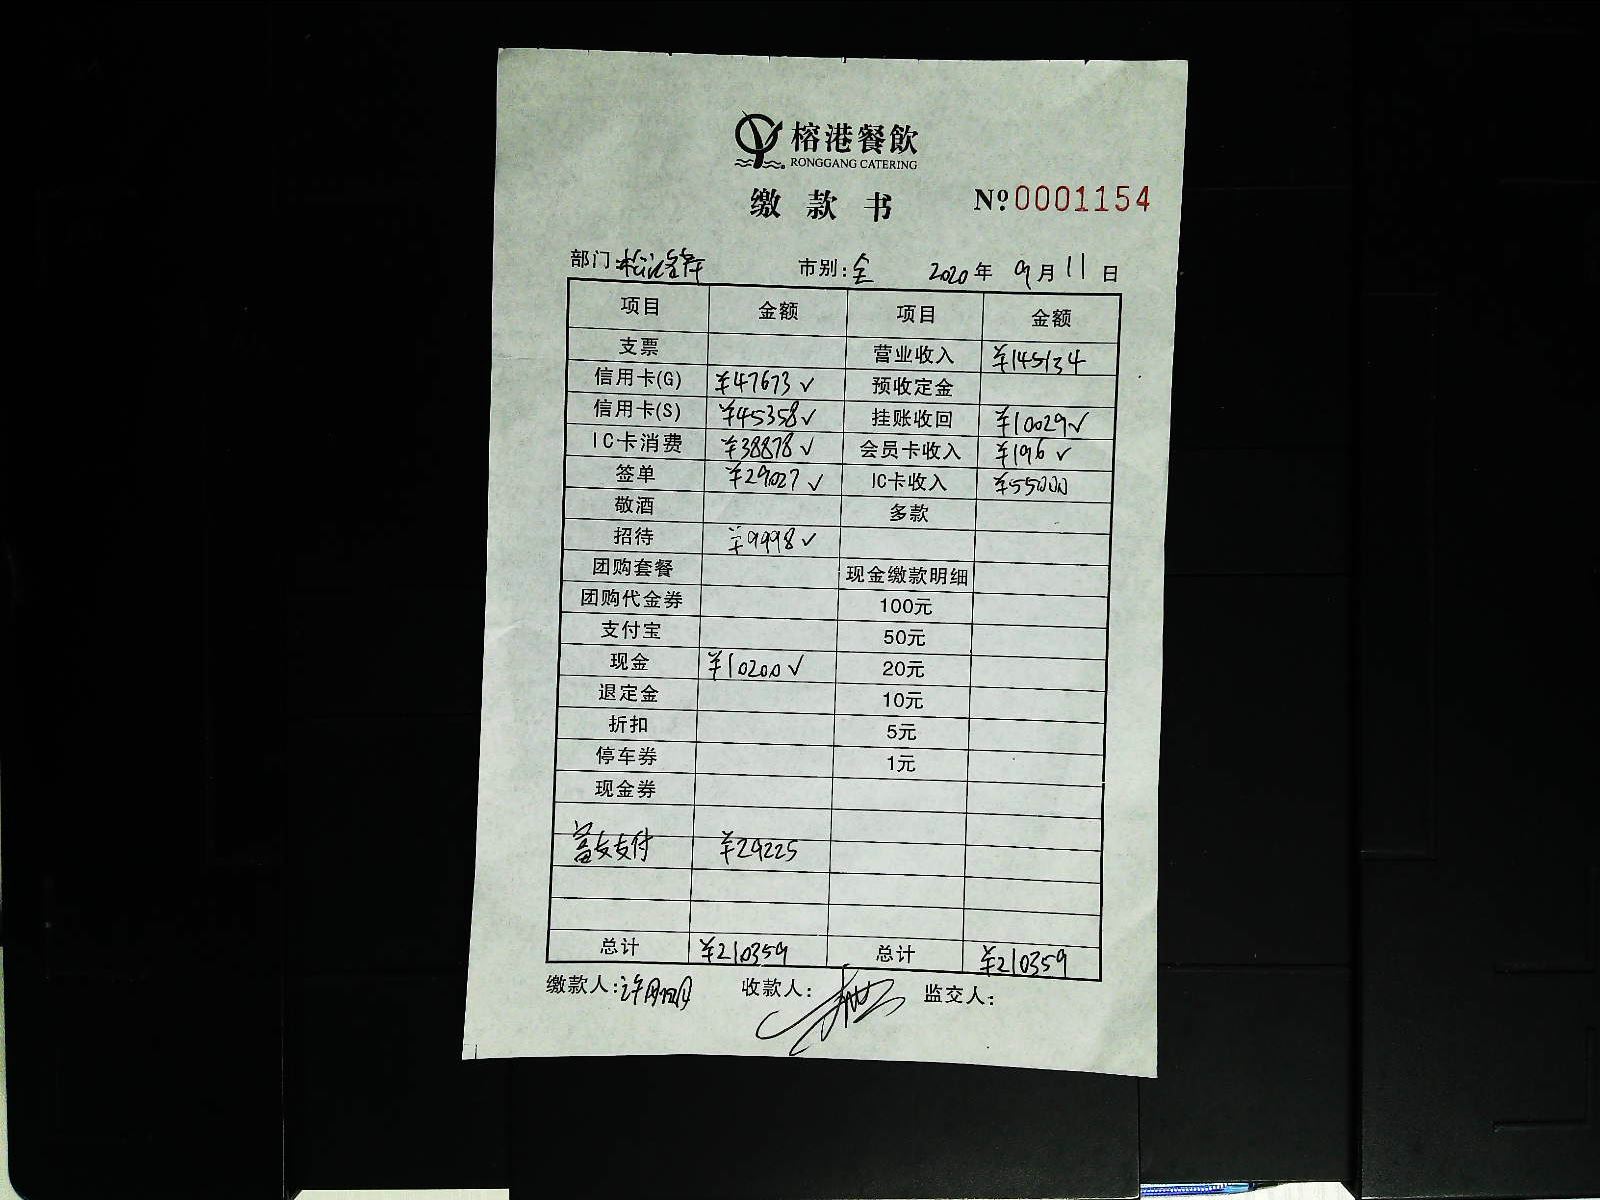 榕港餐飲
RONGGANG CATERING
缴款书 № 0001154
部门: 市别: 全 2020年 9月 11日
项目 金额 项目 金额
支票 营业收入 ¥145134
信用卡(G) ¥47673✓ 预收定金
信用卡(S) ¥45358✓ 挂账收回 ¥10029✓
IC卡消费 ¥38878✓ 会员卡收入 ¥196✓
签单 ¥29027✓ IC卡收入 ¥55000
敬酒 多款
招待 ¥9998✓
团购套餐 现金缴款明细
团购代金券 100元
支付宝 50元
现金 ¥10200✓ 20元
退定金 10元
折扣 5元
停车券 1元
现金券
富友支付 ¥29225
总计 ¥210359 总计 ¥210359
缴款人: 许 收款人: 监交人: